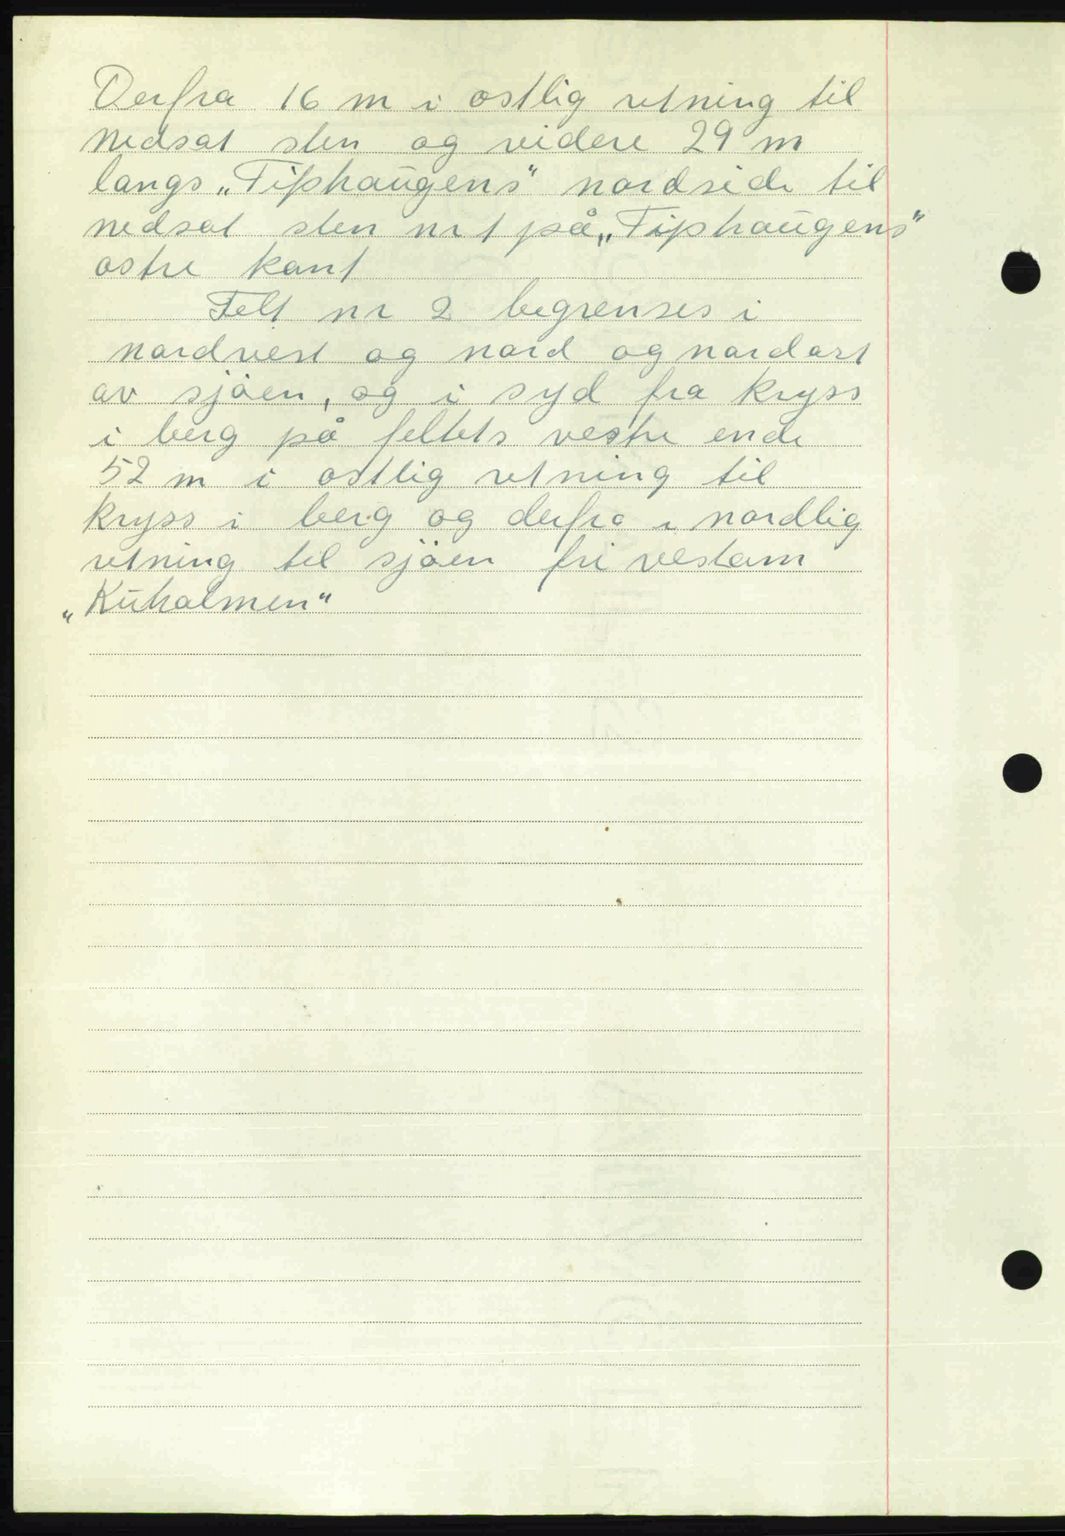 Derfra 16 m i ostlig retning til
nedsat sten og videre 29 m
langs „Fiphaugens" nordside til
nedsat sten nr 1 på „Fiphaugens"
ostre kant
Felt nr 2 begrenses i
nordvest og nord og nordost
av sjøen, og i syd fra kryss
i berg på feltets vestre ende
52 m i ostlig retning til
kryss i berg og derfra i nordlig
retning til sjøen fri vestom
„Kuholmen"